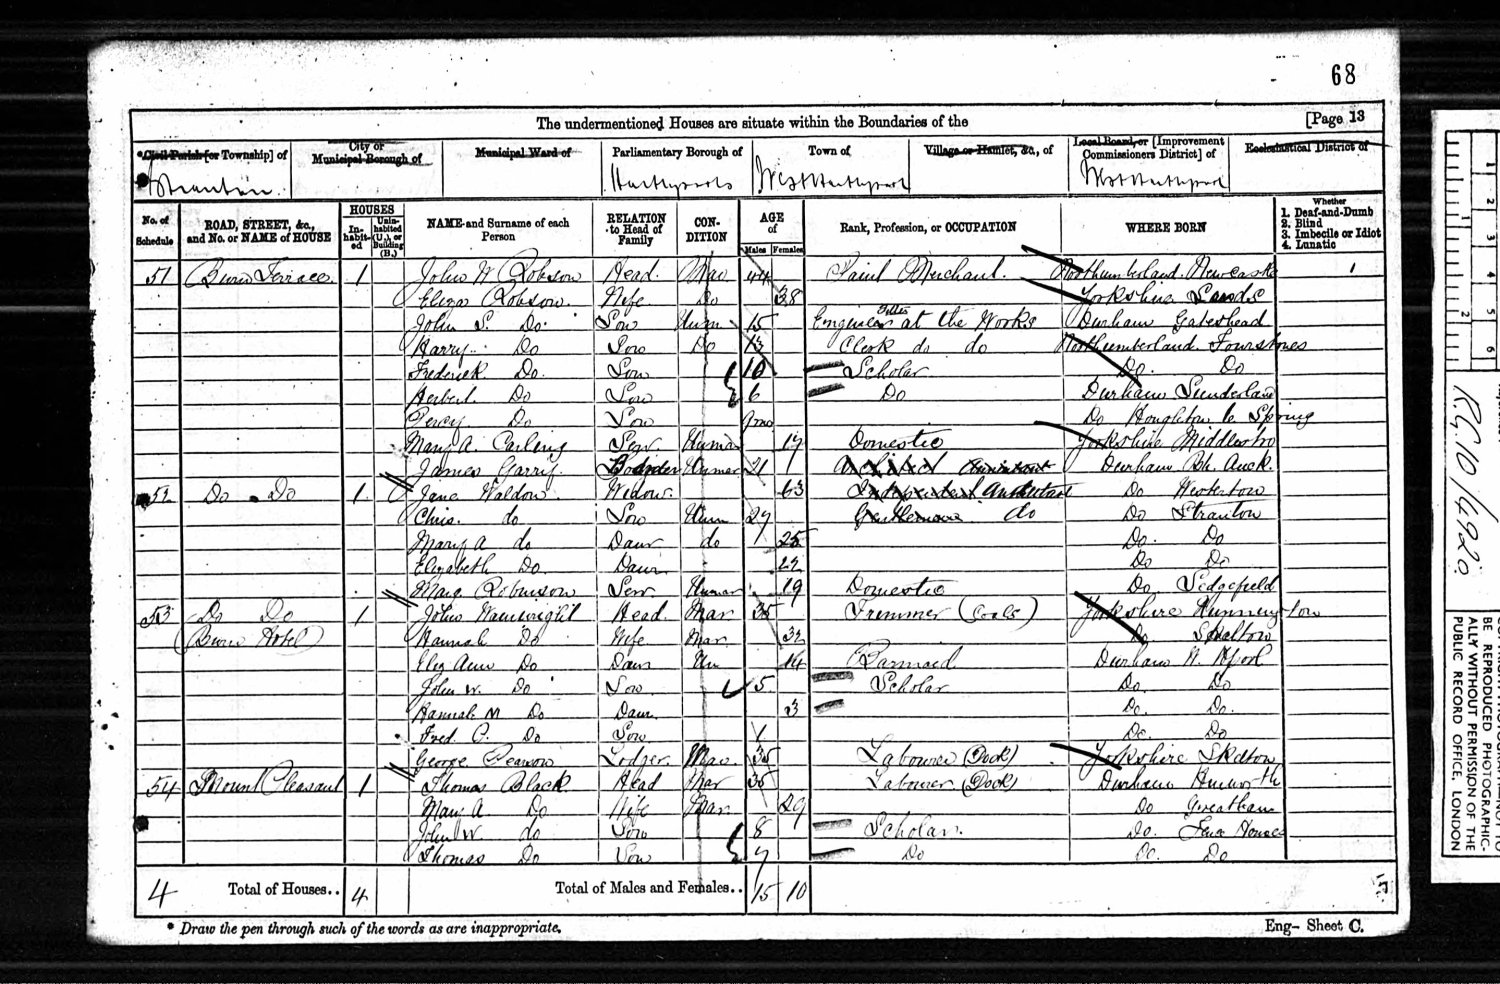 68
The undermentioned Houses are situate within the Boundaries of the [Page 13
*Civil Parish [or Township] of City or Municipal Borough of Municipal Ward of Parliamentary Borough of Town of Village or Hamlet, &c., of Local Board, or [Improvement Commissioners District] of Ecclesiastical District of
Stranton Hartlepools West Hartlepool West Hartlepool
No. of Schedule ROAD, STREET, &c., and No. or NAME of HOUSE HOUSES In-habited Unin-habited (U.), or Building (B.) NAME and Surname of each Person RELATION to Head of Family CON-DITION AGE of Males Females Rank, Profession, or OCCUPATION WHERE BORN Whether 1. Deaf-and-Dumb 2. Blind 3. Imbecile or Idiot 4. Lunatic
51 Burn Terrace 1 John W Robson Head Mar 44 Paint Merchant Northumberland Newcastle 1
Eliza Robson Wife Do 38 Yorkshire Leeds
John S. Do Son Unm 15 Engine Fitter at the Works Durham Gateshead
Harry Do Son Do 13 Clerk do do Northumberland Fourstones
Frederick Do Son 10 Scholar Do Do
Herbert Do Son 6 Do Durham Sunderland
Percy Do Son 9mo Do Houghton le Spring
Mary A. Carling Serv Unmar 17 Domestic Yorkshire Middlesbro
James Garry Boarder Unmar 21 Durham Bh. Auck.
52 Do Do 1 Jane Waldon Widow 63 Independent Do Westerton
Chris. do Son Unm 27 Gentleman do Do Stranton
Mary A do Daur do 25 Do Do
Elizabeth Do Daur 22 Do Do
Mary Robinson Serv Unmar 19 Domestic Do Sedgefield
53 Do Do 1 John Wainwright Head Mar 35 Trimmer (Coals) Yorkshire
(Burn Hotel) Hannah Do Wife Mar 32 Do
Eliz Ann Do Daur Un 14 Barmaid Durham W. Hpool
John W. Do Son 5 Scholar Do Do
Hannah M Do Daur 3 Do Do
Fred. C. Do Son 1 Do Do
George Pearson Lodger Mar 35 Labourer (Dock) Yorkshire Skelton
54 Mount Pleasant 1 Thomas Black Head Mar 35 Labourer (Dock) Durham
Mary A Do Wife Mar 29 Do Greatham
John W do Son 8 Scholar Do Fence Houses
Thomas Do Son 7 Do Do Do
4 Total of Houses.. 4 Total of Males and Females.. 15 10
* Draw the pen through such of the words as are inappropriate.
Eng— Sheet C.
R.G. 10/4920
BE REPRODUCED PHOTOGRAPHIC-
ALLY WITHOUT PERMISSION OF THE
PUBLIC RECORD OFFICE, LONDON